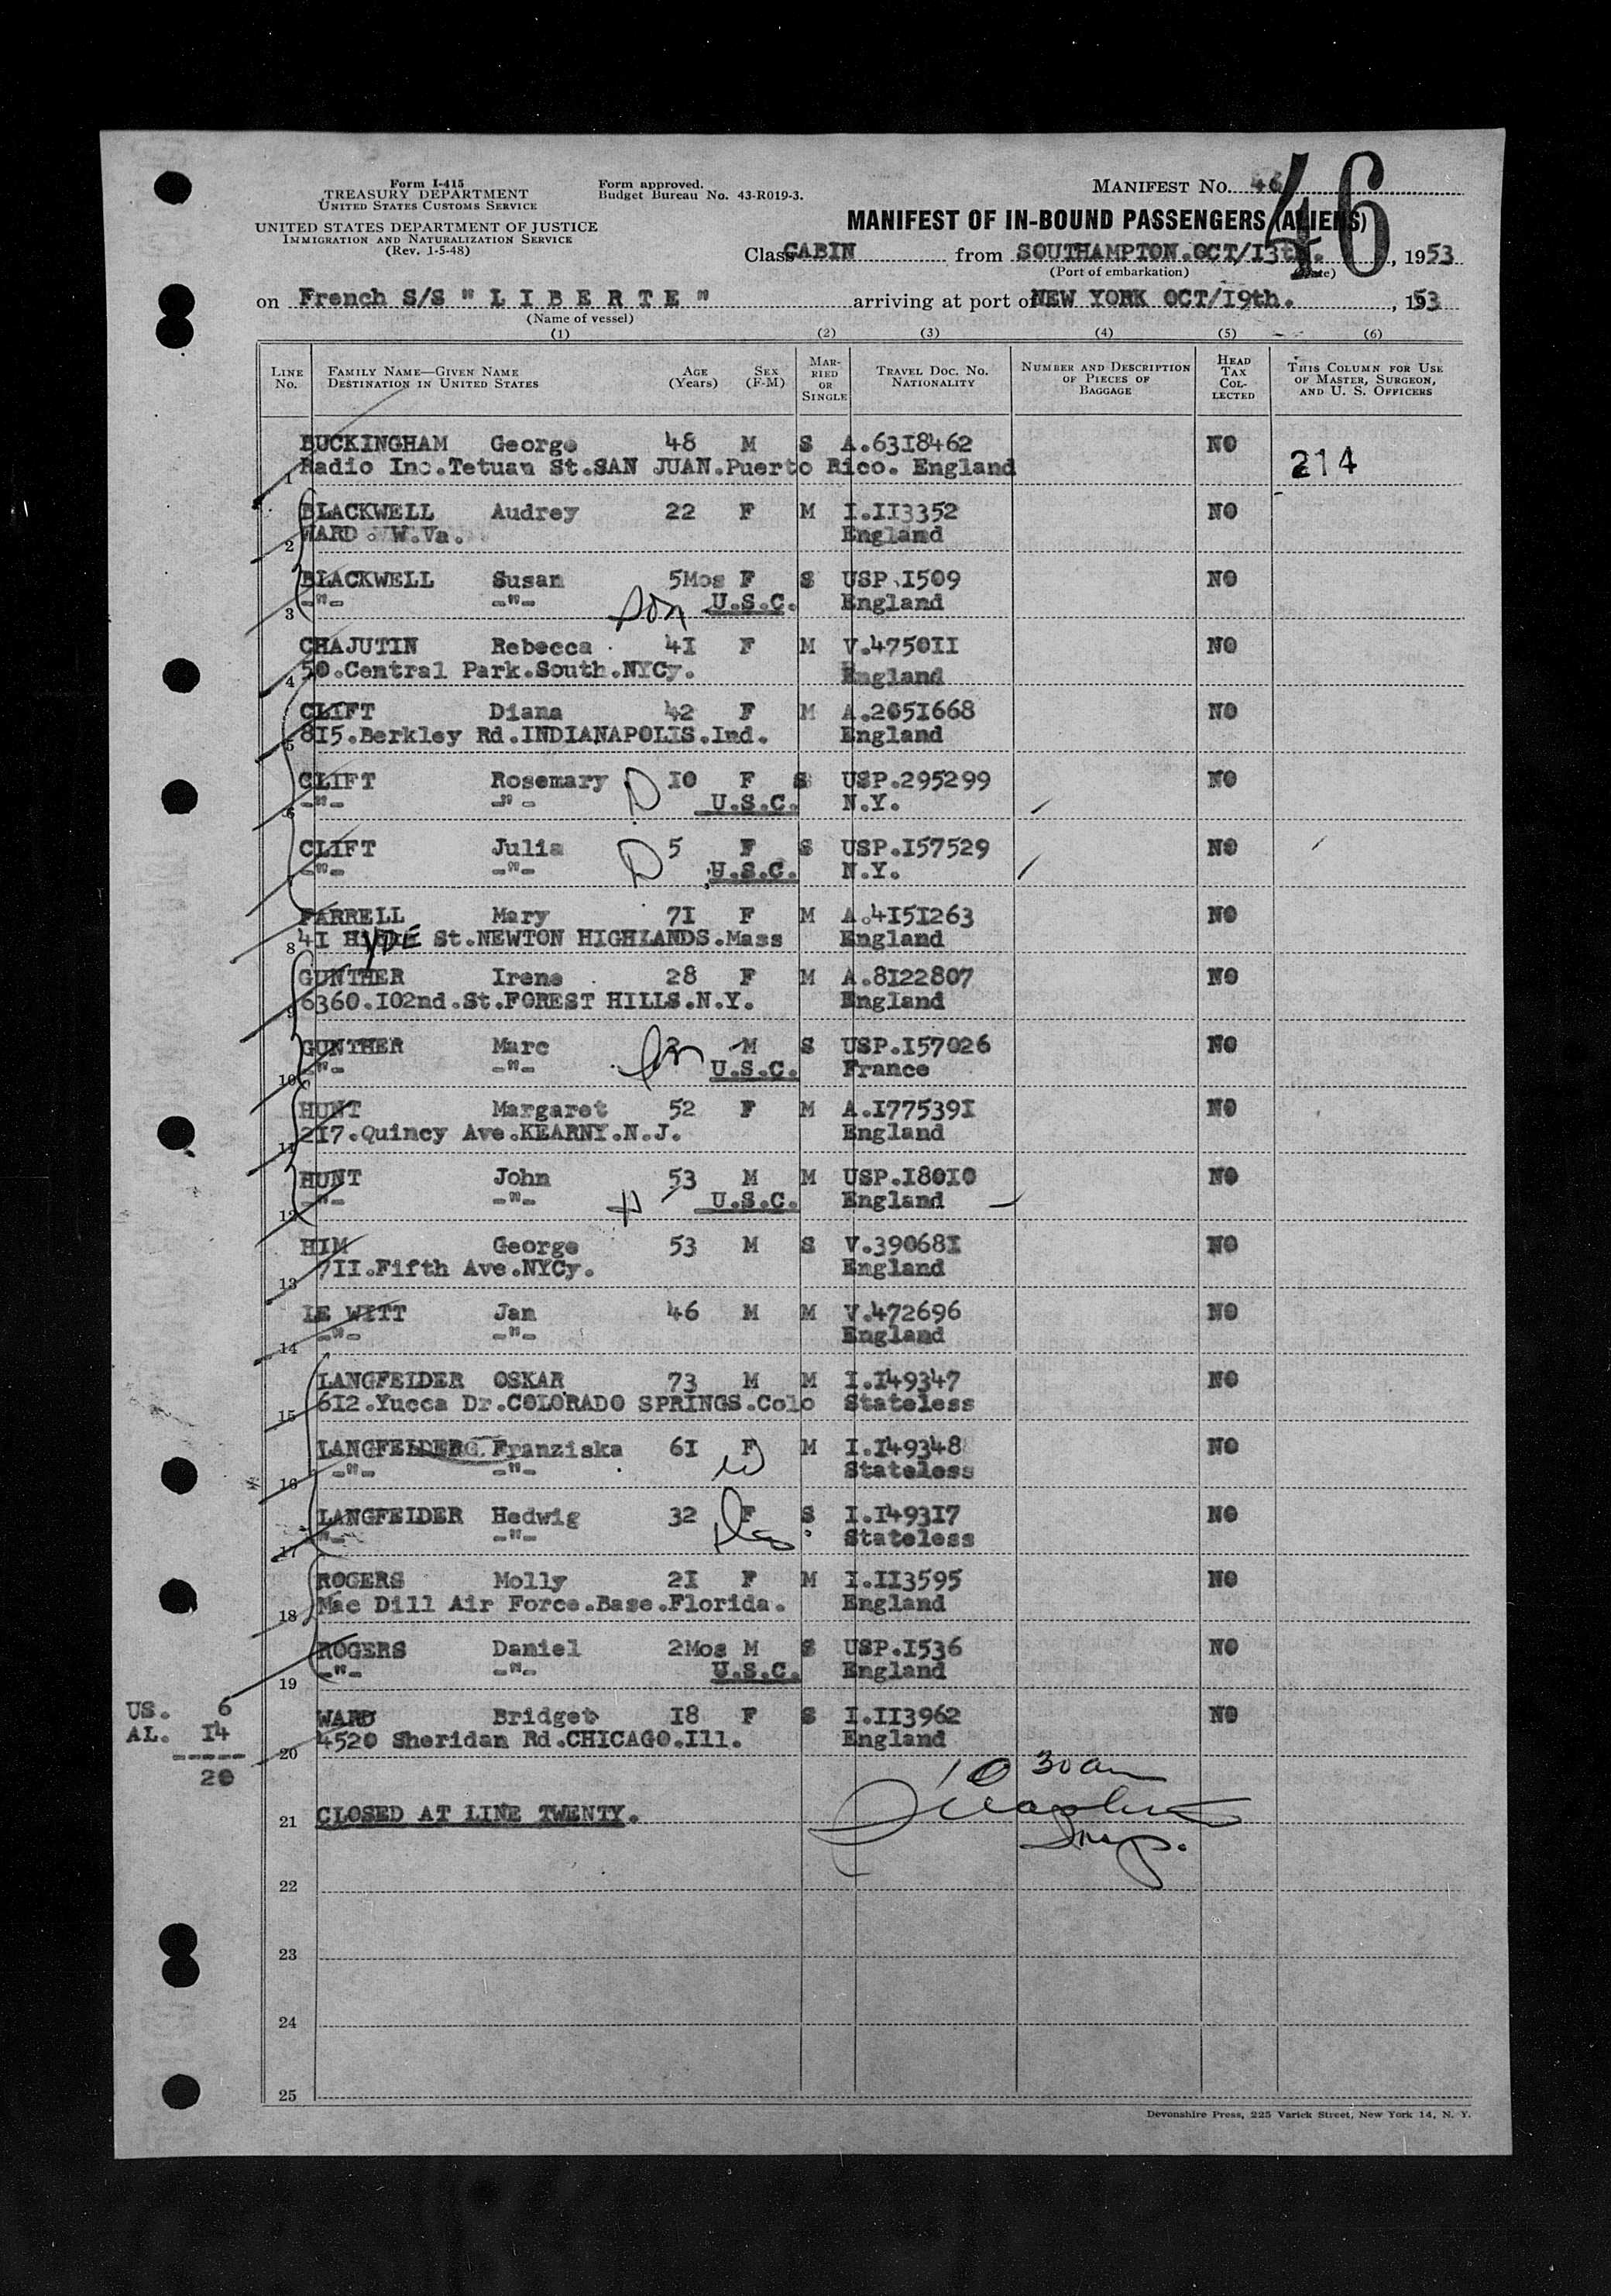 Form I-415
TREASURY DEPARTMENT
UNITED STATES CUSTOMS SERVICE
UNITED STATES DEPARTMENT OF JUSTICE
IMMIGRATION AND NATURALIZATION SERVICE
(Rev. 1-5-48)
Form approved.
Budget Bureau No. 43-R019-3.
MANIFEST NO. 46
46
MANIFEST OF IN-BOUND PASSENGERS (ALIENS)
Class CABIN from SOUTHAMPTON.OCT/I3th., 1953
(Port of embarkation) (Date)
on French S/S " L I B E R T E " arriving at port of NEW YORK OCT/I9th. , 1953
(Name of vessel)
(1) (2) (3) (4) (5) (6)
LINE No. FAMILY NAME—GIVEN NAME DESTINATION IN UNITED STATES AGE (Years) SEX (F-M) MARRIED OR SINGLE TRAVEL DOC. NO. NATIONALITY NUMBER AND DESCRIPTION OF PIECES OF BAGGAGE HEAD TAX COLLECTED THIS COLUMN FOR USE OF MASTER, SURGEON, AND U. S. OFFICERS
BUCKINGHAM George 48 M S A.63I8462 NO
1 Radio Inc.Tetuan St.SAN JUAN.Puerto Rico. England 214
BLACKWELL Audrey 22 F M I.II3352 NO
2 WARD . W.Va. England
BLACKWELL Susan 5Mos F S USP.I509 NO
3 -"- -"- son U.S.C. England
CHAJUTIN Rebecca 4I F M V.4750II NO
4 50.Central Park.South.NYCy. England
CLIFT Diana 42 F M A.205I668 NO
5 8I5.Berkley Rd.INDIANAPOLIS.Ind. England
CLIFT Rosemary D I0 F S USP.295299 NO
6 -"- -"- U.S.C. N.Y.
CLIFT Julia D 5 F S USP.I57529 NO
7 -"- -"- U.S.C. N.Y.
FARRELL Mary 7I F M A.4I5I263 NO
8 4I HYDE St.NEWTON HIGHLANDS.Mass England
GUNTHER Irene 28 F M A.8I22807 NO
9 6360.I02nd.St.FOREST HILLS.N.Y. England
GUNTHER Marc M S USP.I57026 NO
10 -"- -"- U.S.C. France
HUNT Margaret 52 F M A.I77539I NO
11 2I7.Quincy Ave.KEARNY.N.J. England
HUNT John 53 M M USP.I80I0 NO
12 -"- -"- H U.S.C. England
HIM George 53 M S V.39068I NO
13 7II.Fifth Ave.NYCy. England
LE WITT Jan 46 M M V.472696 NO
14 -"- -"- England
LANGFEIDER OSKAR 73 M M I.I49347 NO
15 6I2.Yucca Dr.COLORADO SPRINGS.Colo Stateless
LANGFEIDERG Franziska 6I F M I.I49348 NO
16 -"- -"- W Stateless
LANGFEIDER Hedwig 32 F S I.I493I7 NO
17 -"- -"- Stateless
ROGERS Molly 2I F M I.II3595 NO
18 Mac Dill Air Force.Base.Florida. England
ROGERS Daniel 2Mos M S USP.I536 NO
19 -"- -"- U.S.C. England
WARD Bridget I8 F S I.II3962 NO
20 4520 Sheridan Rd.CHICAGO.Ill. England
US. 6
AL. I4
-----
20
10 30 am
21 CLOSED AT LINE TWENTY.
Insp.
22
23
24
25
Devonshire Press, 225 Varick Street, New York 14, N. Y.